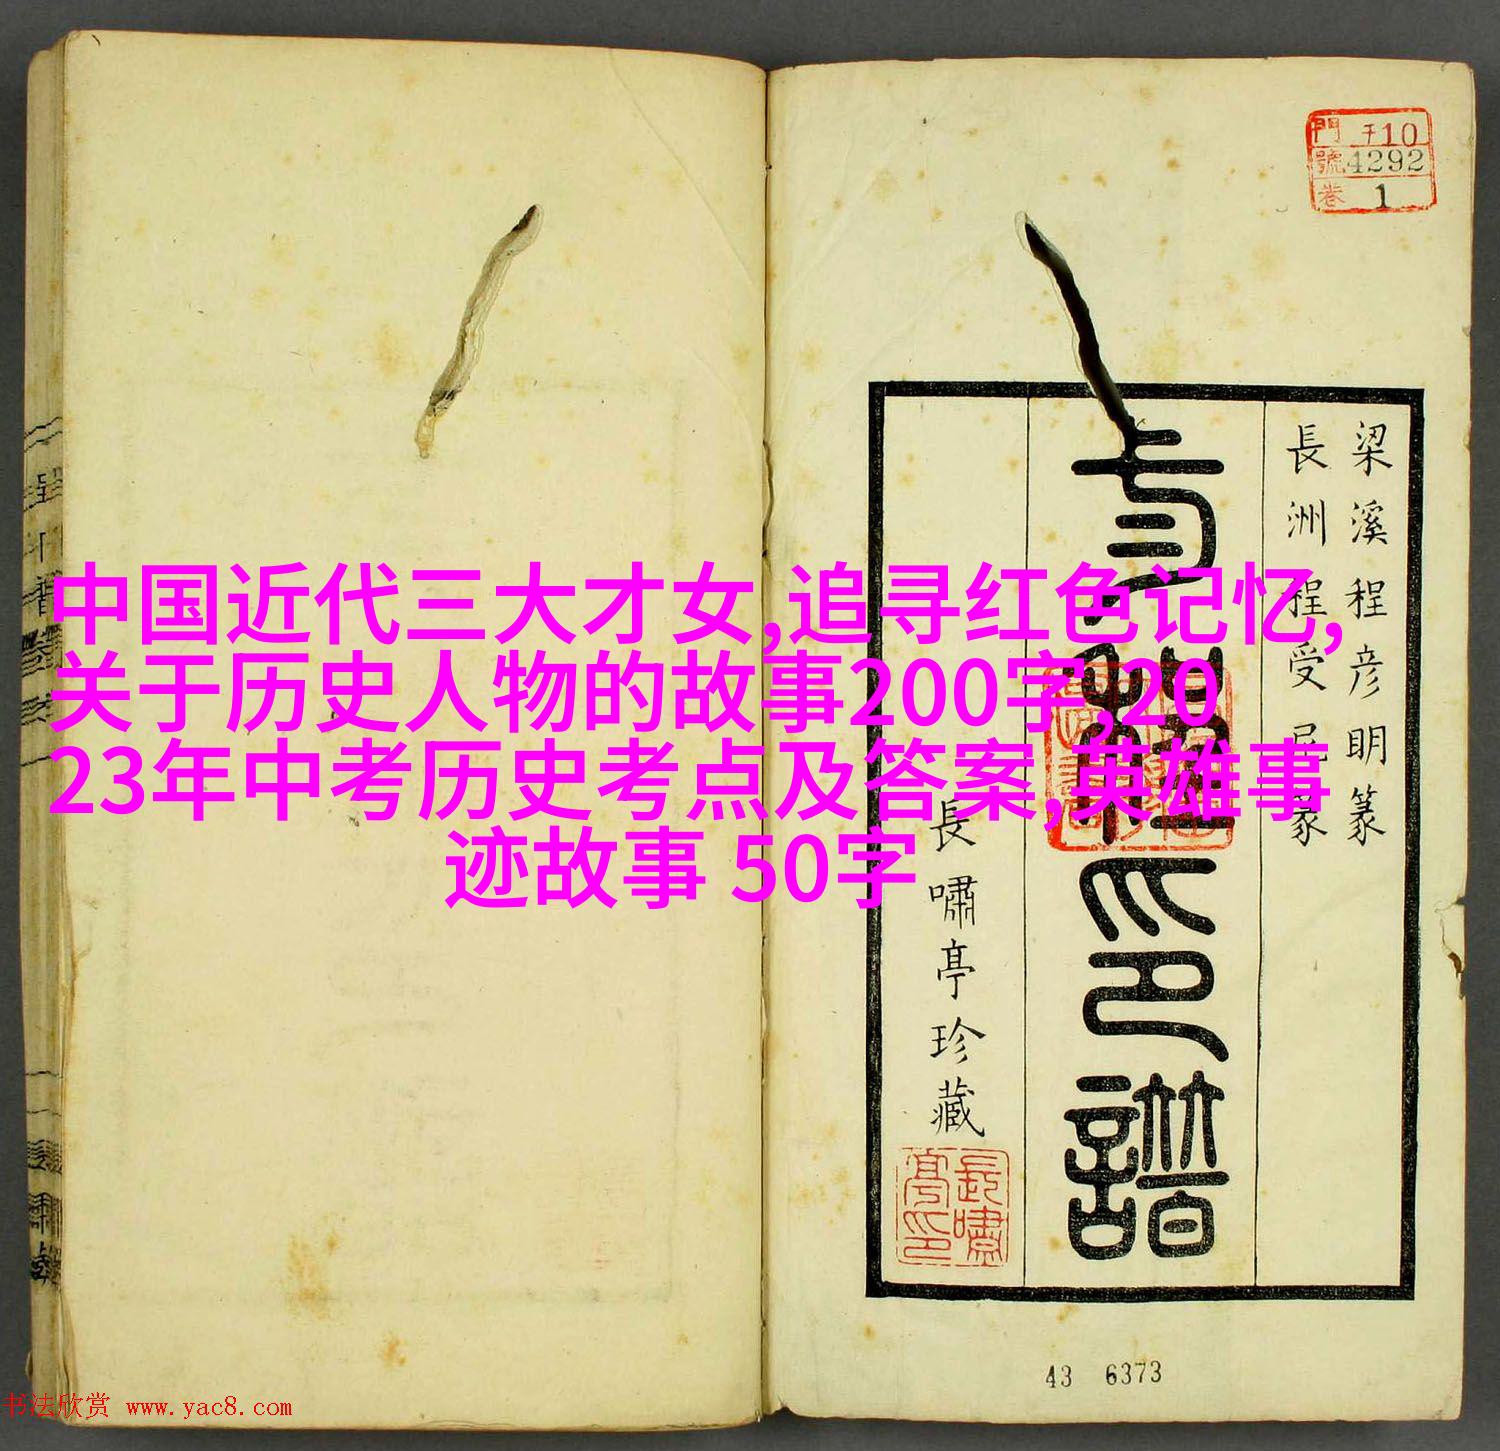 門 千10
號 4292
卷 1
梁溪程彦明篆
長洲程受尼篆
印譜
長嘯亭珍藏
長嘯亭印
中国近代三大才女,追寻红色记忆,
关于历史人物的故事200字,20
23年中考历史考点及答案,英雄事
迹故事 50字
43 6373
书法欣赏 www.yac8.com